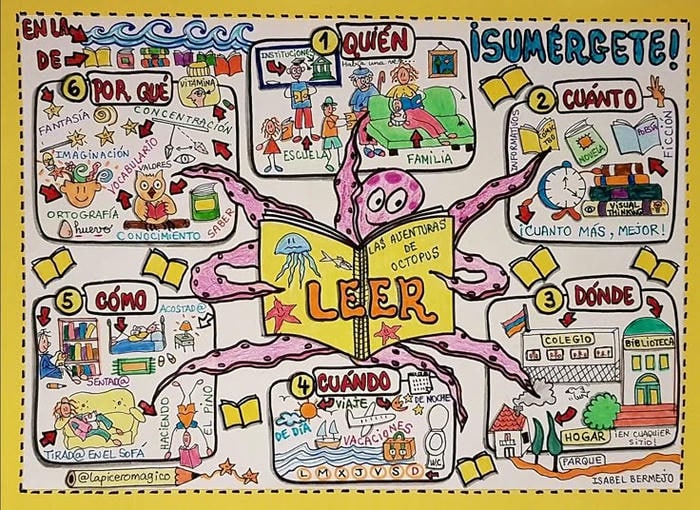 EN LA
DE
¡SUMÉRGETE!
1 QUIÉN
INSTITUCIONES
Había una vez...
ESCUELA
FAMILIA
2 CUÁNTO
INFORMATIVOS
CÓMIC
NOVELA
POESÍA
FICCIÓN
VISUAL
THINKING
¡CUANTO MÁS, MEJOR!
3 DÓNDE
COLEGIO
BIBLIOTECA
HOGAR
¡EN CUALQUIER
SITIO!
PARQUE
4 CUÁNDO
VIAJE
DE DÍA
DE NOCHE
VACACIONES
L M X J V S D
W.C.
5 CÓMO
ACOSTAD@
SENTAD@
TIRAD@ EN EL SOFÁ
HACIENDO
EL PINO
6 POR QUÉ
VITAMINA
CONCENTRACIÓN
FANTASÍA
IMAGINACIÓN
VOCABULARIO
VALORES
ORTOGRAFÍA
huevo
CONOCIMIENTO
SABER
LAS AVENTURAS
DE
OCTOPUS
LEER
@lapiceromagico
ISABEL BERMEJO